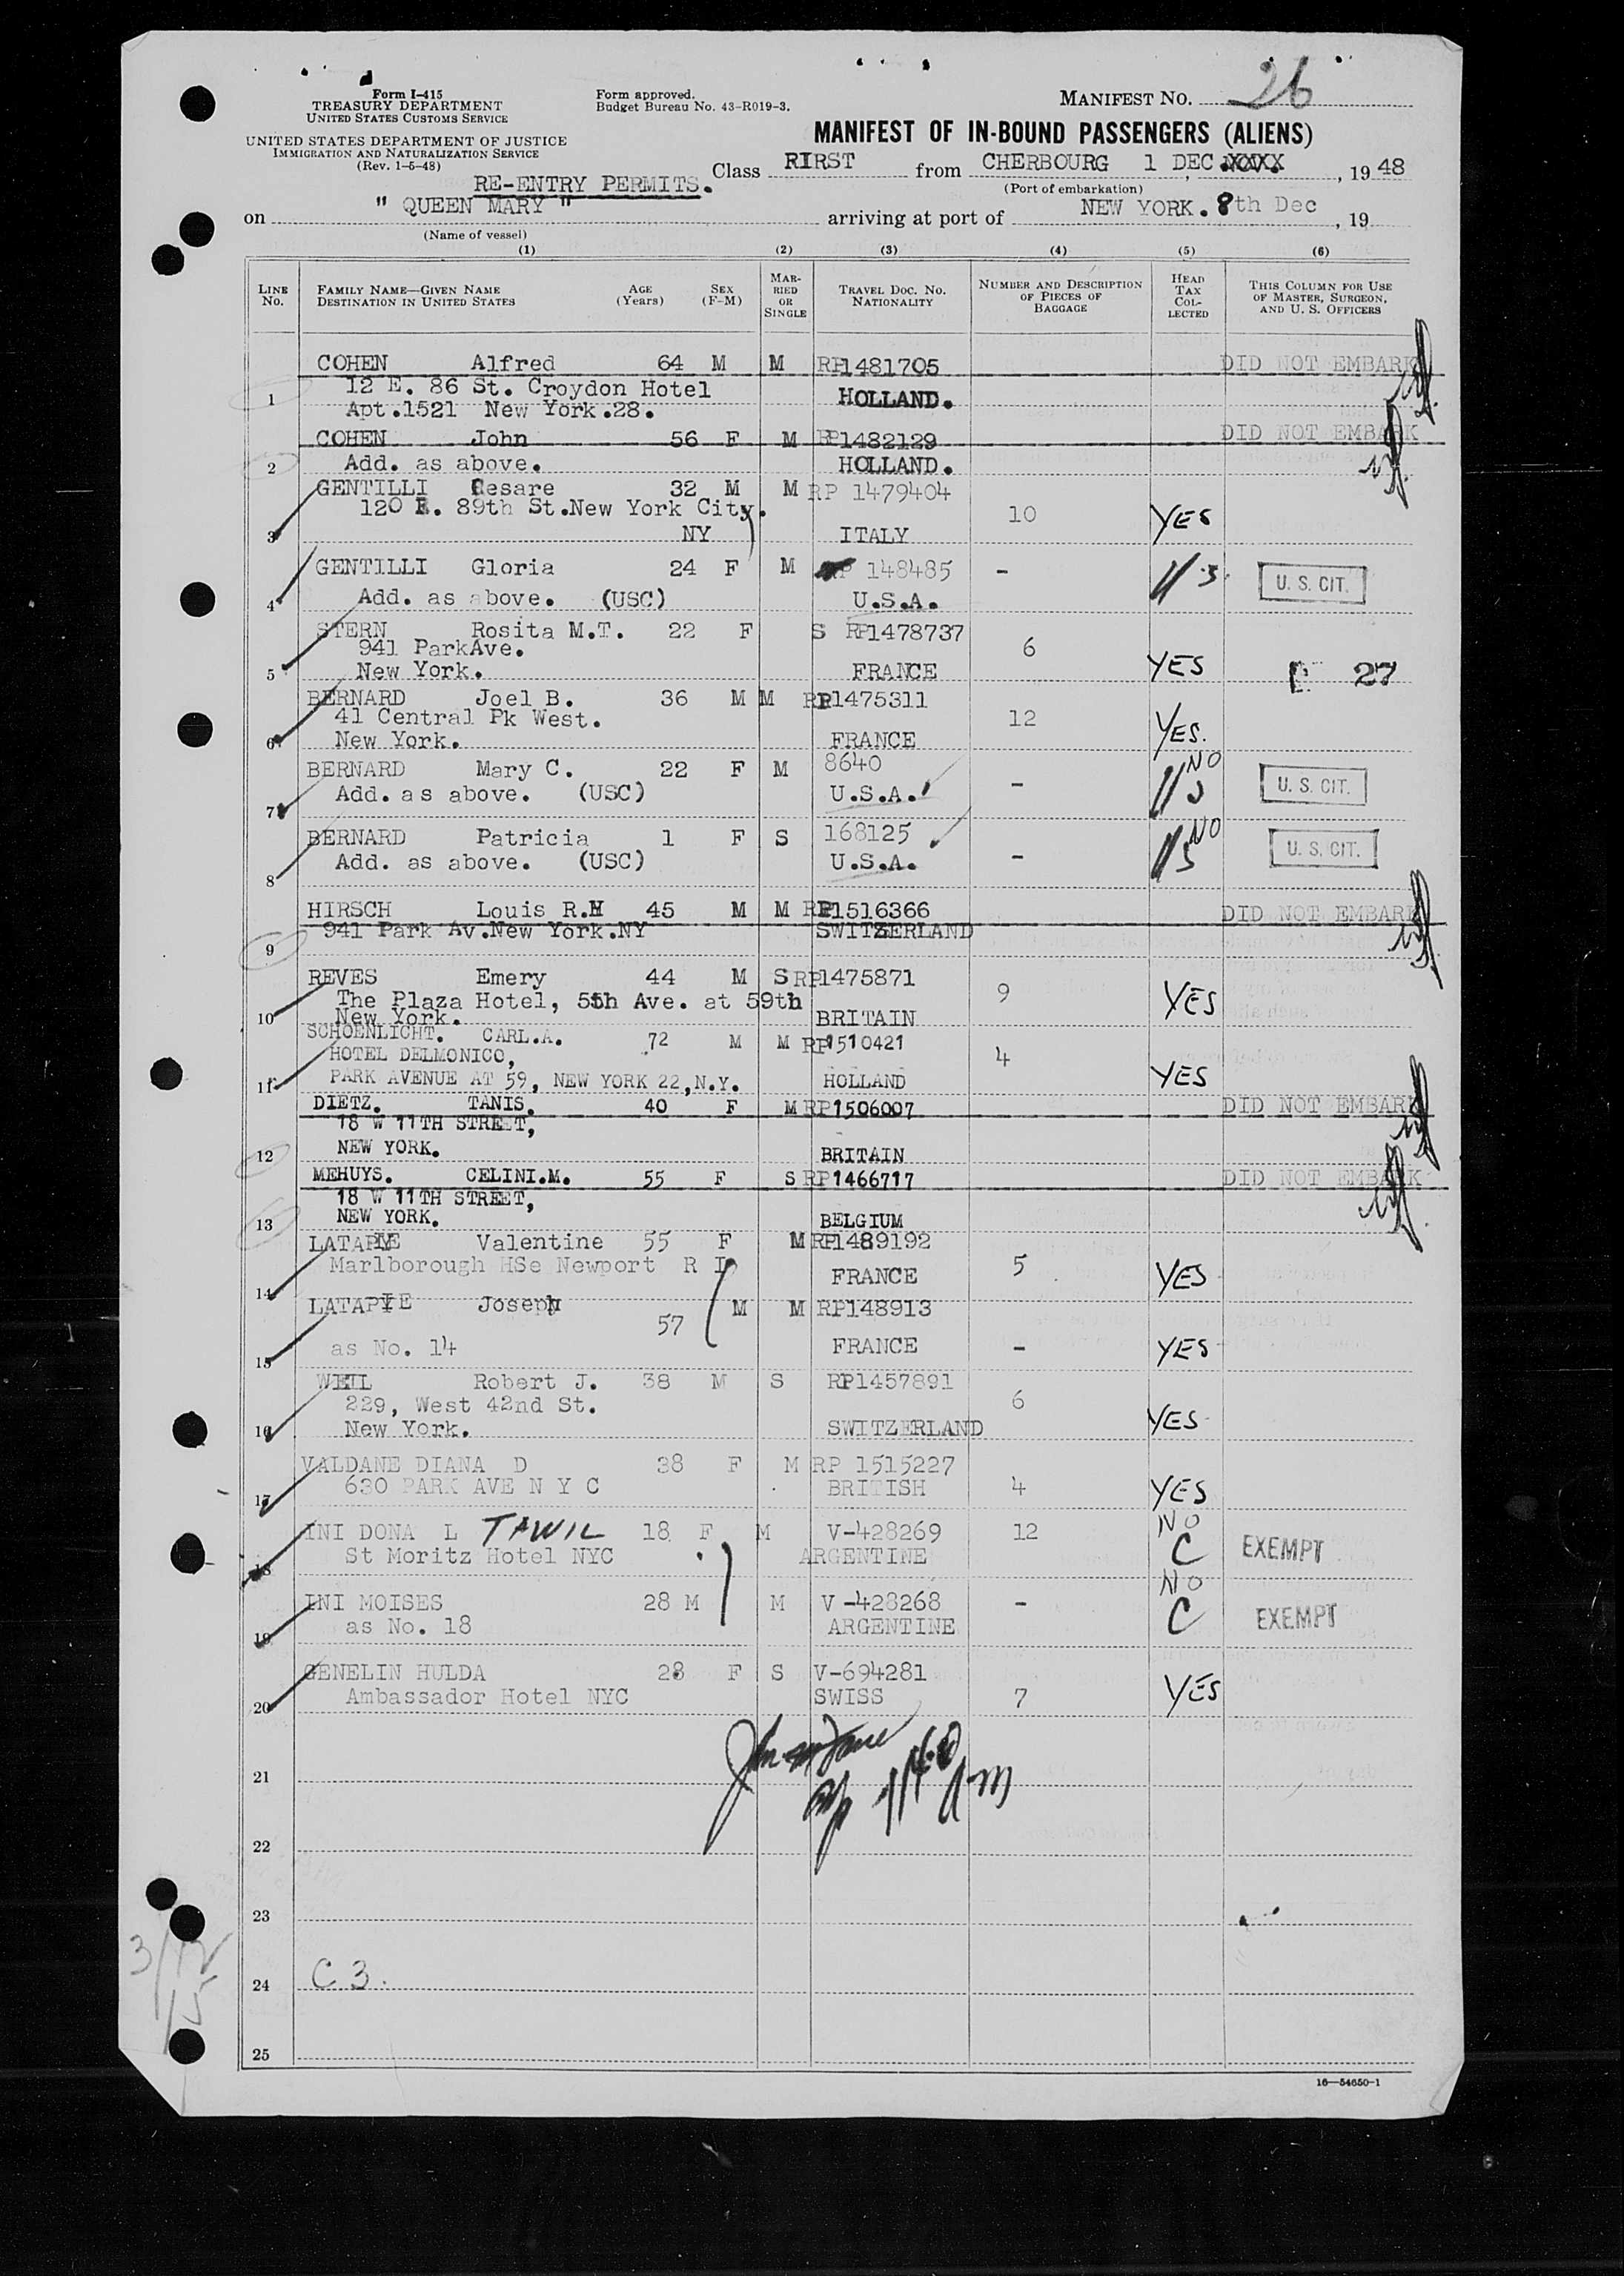 Form I-415
TREASURY DEPARTMENT
UNITED STATES CUSTOMS SERVICE
UNITED STATES DEPARTMENT OF JUSTICE
IMMIGRATION AND NATURALIZATION SERVICE
(Rev. 1-5-48)
Form approved.
Budget Bureau No. 43-R019-3.
MANIFEST NO. 26
MANIFEST OF IN-BOUND PASSENGERS (ALIENS)
Class RIRST from CHERBOURG 1 DEC , 19 48
(Port of embarkation)
RE-ENTRY PERMITS.
on " QUEEN MARY " arriving at port of NEW YORK. 8th Dec , 19
(Name of vessel)
(1) (2) (3) (4) (5) (6)
LINE No. FAMILY NAME—GIVEN NAME DESTINATION IN UNITED STATES AGE (Years) SEX (F-M) MARRIED OR SINGLE TRAVEL DOC. NO. NATIONALITY NUMBER AND DESCRIPTION OF PIECES OF BAGGAGE HEAD TAX COLLECTED THIS COLUMN FOR USE OF MASTER, SURGEON, AND U. S. OFFICERS
COHEN Alfred 64 M M RP1481705 DID NOT EMBARK
12 E. 86 St. Croydon Hotel
1 Apt.1521 New York.28. HOLLAND.
COHEN John 56 F M RP1482129 DID NOT EMBARK
2 Add. as above. HOLLAND.
GENTILLI Cesare 32 M M RP 1479404
120 E. 89th St.New York City. 10 YES
3 NY ITALY
GENTILLI Gloria 24 F M RP 148485 - U. S. CIT.
4 Add. as above. (USC) U.S.A.
STERN Rosita M.T. 22 F S RP1478737
941 ParkAve. 6 YES
5 New York. FRANCE 27
BERNARD Joel B. 36 M M RP1475311
41 Central Pk West. 12 YES.
6 New York. FRANCE
BERNARD Mary C. 22 F M 8640 NO
7 Add. as above. (USC) U.S.A. - U. S. CIT.
BERNARD Patricia 1 F S 168125 NO
8 Add. as above. (USC) U.S.A. - U. S. CIT.
HIRSCH Louis R.H 45 M M RP1516366 DID NOT EMBARK
9 941 Park Av.New York.NY SWITZERLAND
REVES Emery 44 M S RP1475871
The Plaza Hotel, 5th Ave. at 59th 9 YES
10 New York. BRITAIN
SCHOENLICHT. CARL.A. 72 M M RP1510421
HOTEL DELMONICO, 4
11 PARK AVENUE AT 59, NEW YORK 22,N.Y. HOLLAND YES
DIETZ. TANIS. 40 F M RP1506007 DID NOT EMBARK
18 W 11TH STREET,
12 NEW YORK. BRITAIN
MEHUYS. CELINI.M. 55 F S RP1466717 DID NOT EMBARK
18 W 11TH STREET,
13 NEW YORK. BELGIUM
LATAPIE Valentine 55 F M RP1489192
14 Marlborough HSe Newport R I FRANCE 5 YES
LATAPIE Joseph 57 M M RP148913
15 as No. 14 FRANCE - YES
WEIL Robert J. 38 M S RP1457891
229, West 42nd St. 6
16 New York. SWITZERLAND YES
VALDANE DIANA D 38 F M RP 1515227
17 630 PARK AVE N Y C BRITISH 4 YES
INI DONA L TAWIL 18 F M V-428269 12 NO
18 St Moritz Hotel NYC ARGENTINE C EXEMPT
INI MOISES 28 M M V-428268 - NO
19 as No. 18 ARGENTINE C EXEMPT
GENELIN HULDA 28 F S V-694281
20 Ambassador Hotel NYC SWISS 7 YES
21
22
23
24 C 3.
25
3/12
15
16—54650-1